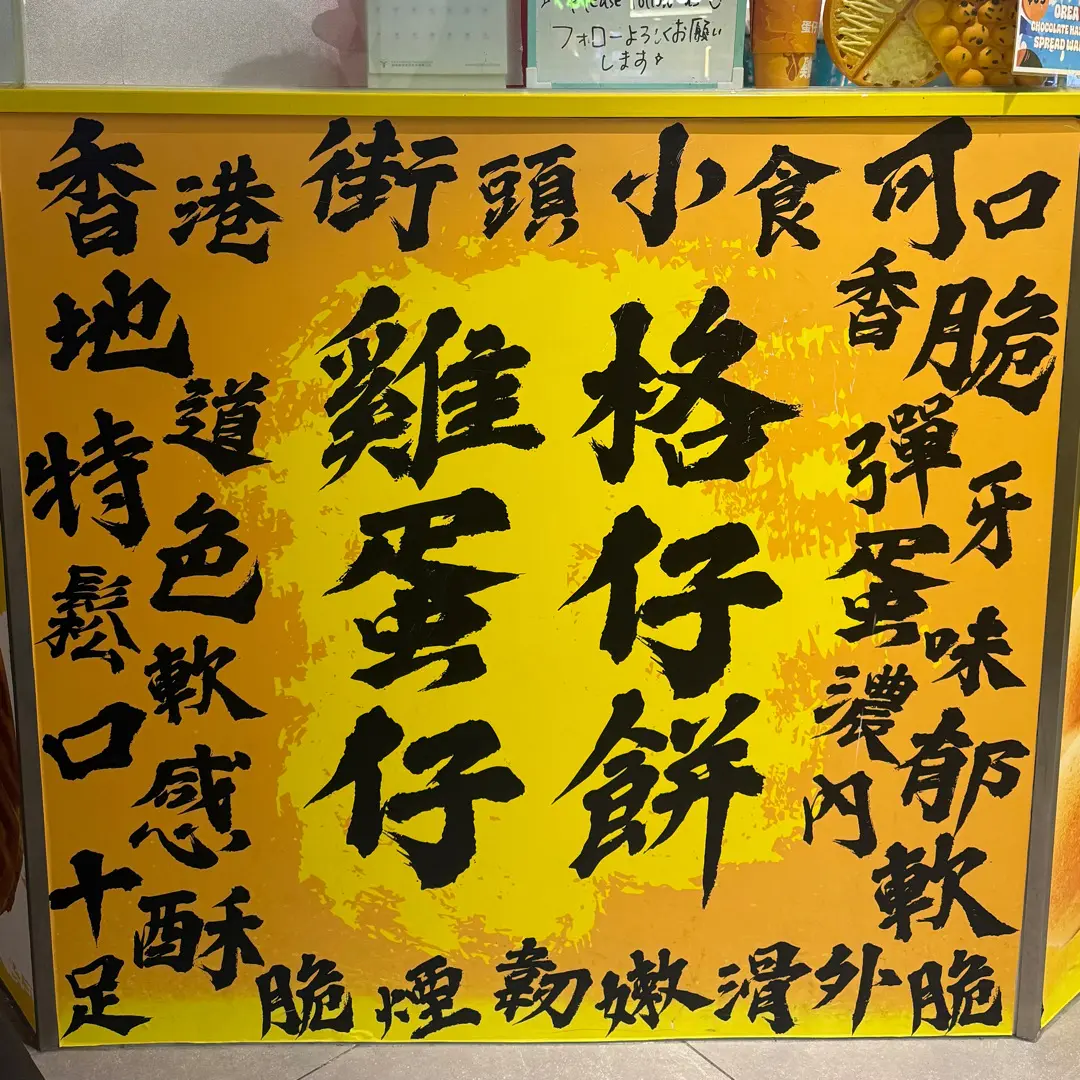 Please
フォローよろしくお願い
します
OREA
CHOCOLATE HA
SPREAD WA
香港街頭小食可口
地道
特色
鬆軟
口感
十足
香脆
彈牙
蛋味
濃郁
內軟
雞蛋仔
格仔餅
酥脆煙韌嫩滑外脆